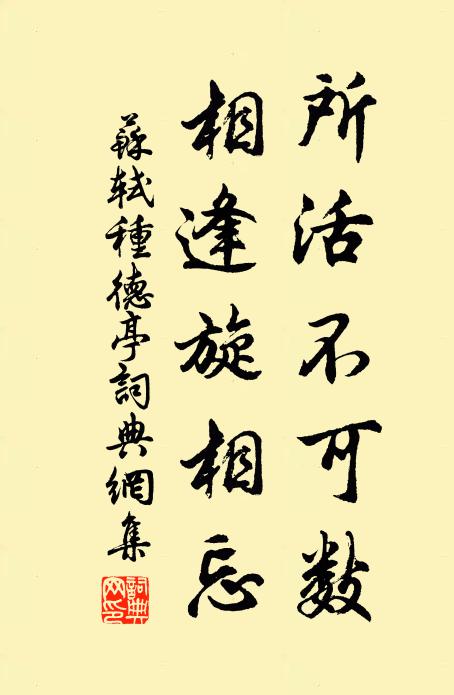 所活不可數
相逢旋相忘
蘇軾種德亭詞典網集
詞典網印